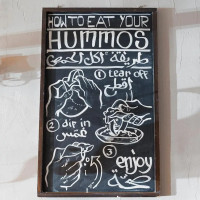 HOW TO EAT YOUR
HUMMOS
طريقة أكل الحمص
1 tear off
أقطع
2 dip in
غمّس
3 enjoy